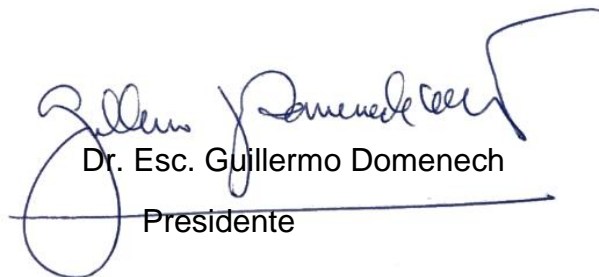 Guillermo Domenech
Dr. Esc. Guillermo Domenech
Presidente